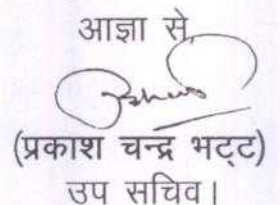 आज्ञा से,
(प्रकाश चन्द्र भट्ट)
उप सचिव।